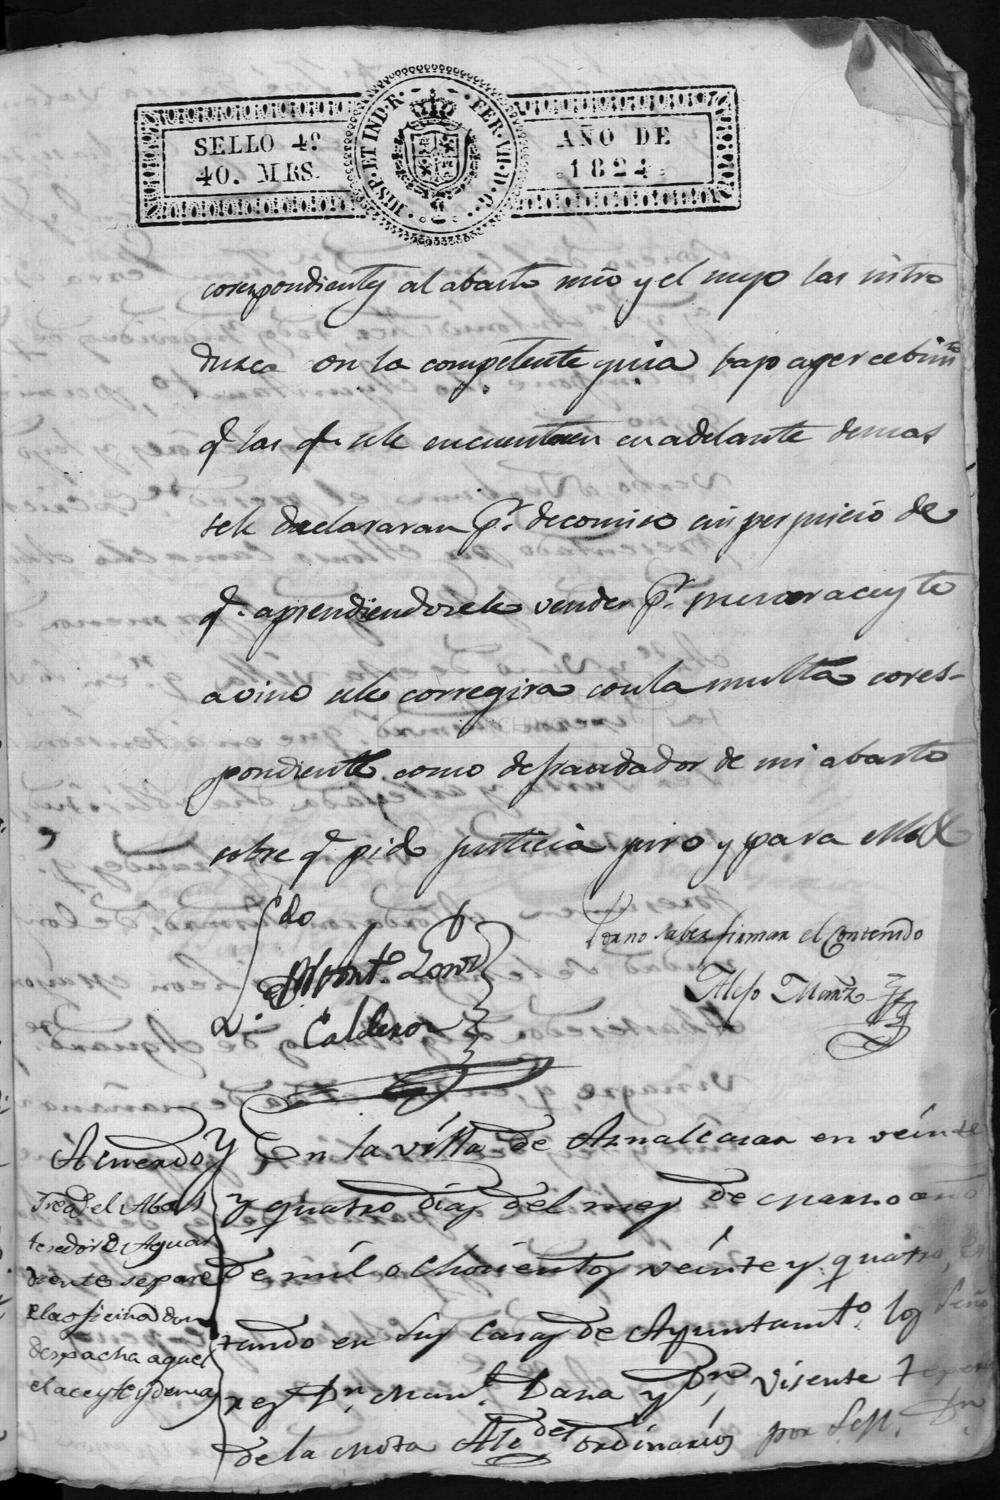 SELLO 4º
40. MRS.
HISP. ET IND. R. FER. VII. D. G.
AÑO DE
1824
correspondientes al abasto mio y el suyo las intro
dusca con la competente guia bajo apercebimto
q las q. se le encuentren en adelante demas
se le declararan pr. decomiso sin perjuicio de
q. aprendiendosele vender pr. menor aceyte
o vino se le corregira con la multa cores-
pondiente como defraudador de mi abasto
sobre q pido justicia juro y para ello &
Ldo
Calderon
Por no saber firmar el Contenido
Acuerdo
el Abas
tecedor de Aguar
diente separe
la oficina don
despacha aquel
el aceyte y demas
En la villa de Aznalcasar en veinte
y quatro dias del mes de Marzo año
de mil ochocientos veinte y quatro, es
tando en sus Casas de Ayuntamto. los Seño
res Dn. Manl. y Dn. Visente
de la Mota Alcdes ordinarios por